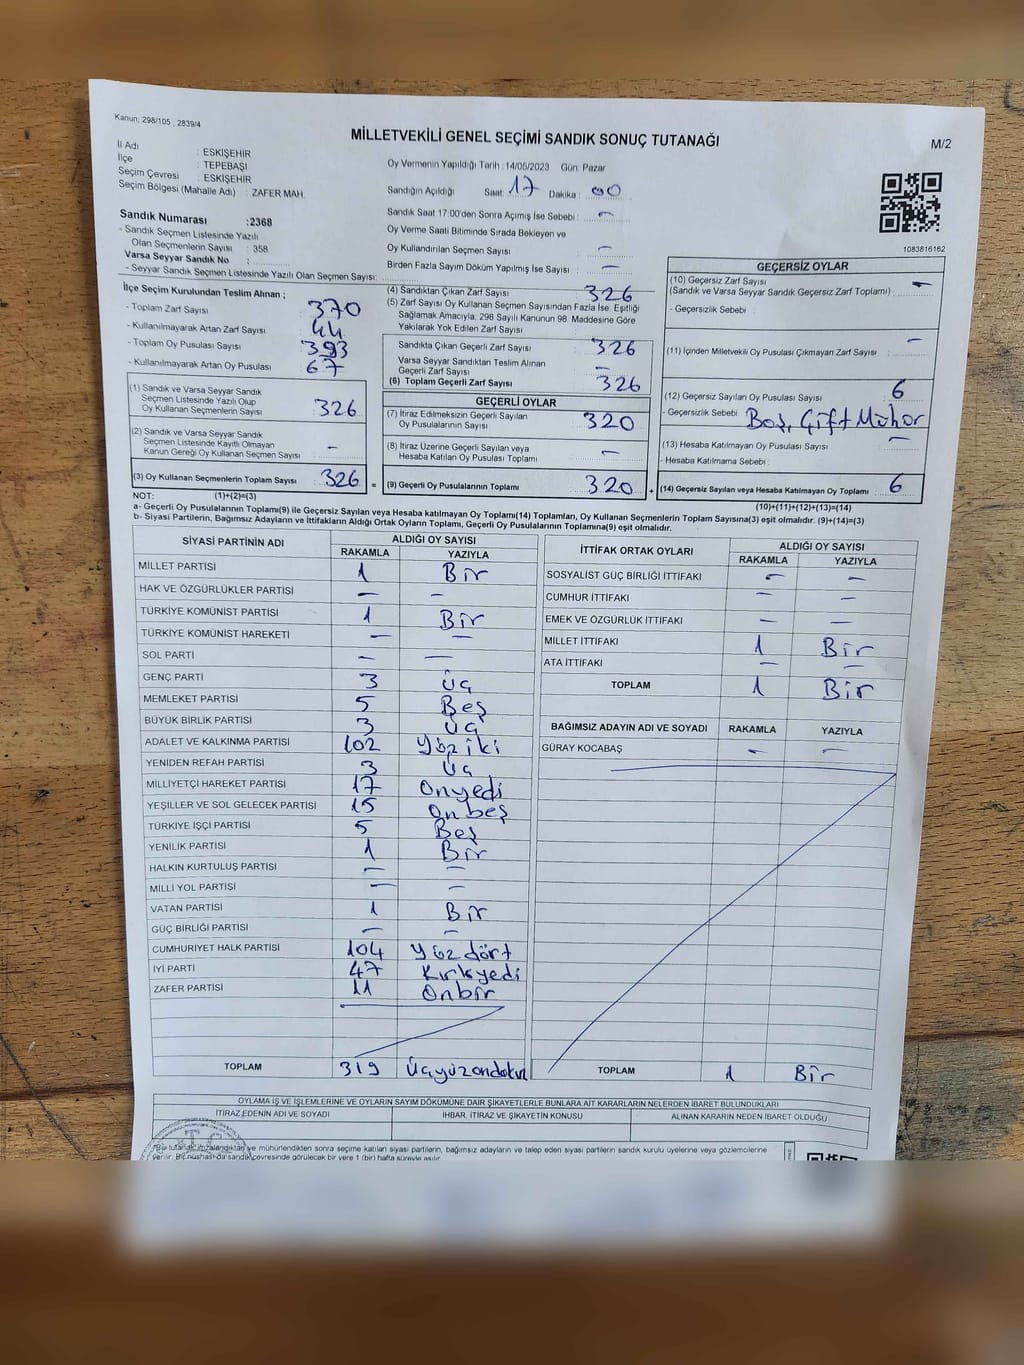 Kanun: 298/105 , 2839/4
MİLLETVEKİLİ GENEL SEÇİMİ SANDIK SONUÇ TUTANAĞI
M/2
İl Adı : ESKİŞEHİR
İlçe : TEPEBAŞI
Seçim Çevresi : ESKİŞEHİR
Seçim Bölgesi (Mahalle Adı) : ZAFER MAH.
Sandık Numarası :2368
- Sandık Seçmen Listesinde Yazılı
Olan Seçmenlerin Sayısı : 358
Varsa Seyyar Sandık No :
- Seyyar Sandık Seçmen Listesinde Yazılı Olan Seçmen Sayısı:
Oy Vermenin Yapıldığı Tarih : 14/05/2023 Gün: Pazar
Sandığın Açıldığı Saat: 17 Dakika: 00
Sandık Saat 17:00'den Sonra Açılmış İse Sebebi : -
Oy Verme Saati Bitiminde Sırada Bekleyen ve
Oy Kullandırılan Seçmen Sayısı -
Birden Fazla Sayım Döküm Yapılmış İse Sayısı : -
1083816162
İlçe Seçim Kurulundan Teslim Alınan ;
- Toplam Zarf Sayısı : 370
- Kullanılmayarak Artan Zarf Sayısı : 44
- Toplam Oy Pusulası Sayısı : 393
- Kullanılmayarak Artan Oy Pusulası : 67
(1) Sandık ve Varsa Seyyar Sandık
Seçmen Listesinde Yazılı Olup
Oy Kullanan Seçmenlerin Sayısı : 326
(2) Sandık ve Varsa Seyyar Sandık
Seçmen Listesinde Kayıtlı Olmayan
Kanun Gereği Oy Kullanan Seçmen Sayısı : -
(3) Oy Kullanan Seçmenlerin Toplam Sayısı : 326 =
(4) Sandıktan Çıkan Zarf Sayısı : 326
(5) Zarf Sayısı Oy Kullanan Seçmen Sayısından Fazla İse, Eşitliği
Sağlamak Amacıyla, 298 Sayılı Kanunun 98. Maddesine Göre
Yakılarak Yok Edilen Zarf Sayısı :
Sandıkta Çıkan Geçerli Zarf Sayısı : 326
Varsa Seyyar Sandıktan Teslim Alınan
Geçerli Zarf Sayısı : -
(6) Toplam Geçerli Zarf Sayısı : 326
GEÇERLİ OYLAR
(7) İtiraz Edilmeksizin Geçerli Sayılan
Oy Pusulalarının Sayısı : 320
(8) İtiraz Üzerine Geçerli Sayılan veya
Hesaba Katılan Oy Pusulası Toplamı : -
(9) Geçerli Oy Pusulalarının Toplamı : 320 +
GEÇERSİZ OYLAR
(10) Geçersiz Zarf Sayısı : -
(Sandık ve Varsa Seyyar Sandık Geçersiz Zarf Toplamı)
- Geçersizlik Sebebi
(11) İçinden Milletvekili Oy Pusulası Çıkmayan Zarf Sayısı : -
(12) Geçersiz Sayılan Oy Pusulası Sayısı : 6
- Geçersizlik Sebebi : Boş, Çift Mühür
(13) Hesaba Katılmayan Oy Pusulası Sayısı : -
- Hesaba Katılmama Sebebi :
(14) Geçersiz Sayılan veya Hesaba Katılmayan Oy Toplamı : 6
NOT: (1)+(2)=(3) (10)+(11)+(12)+(13)=(14)
a- Geçerli Oy Pusulalarının Toplamı(9) ile Geçersiz Sayılan veya Hesaba katılmayan Oy Toplamı(14) Toplamları, Oy Kullanan Seçmenlerin Toplam Sayısına(3) eşit olmalıdır. (9)+(14)=(3)
b- Siyasi Partilerin, Bağımsız Adayların ve İttifakların Aldığı Ortak Oyların Toplamı, Geçerli Oy Pusulalarının Toplamına(9) eşit olmalıdır.
SİYASİ PARTİNİN ADI ALDIĞI OY SAYISI
RAKAMLA YAZIYLA
MİLLET PARTİSİ 1 Bir
HAK VE ÖZGÜRLÜKLER PARTİSİ - -
TÜRKİYE KOMÜNİST PARTİSİ 1 Bir
TÜRKİYE KOMÜNİST HAREKETİ - -
SOL PARTİ - -
GENÇ PARTİ 3 Üç
MEMLEKET PARTİSİ 5 Beş
BÜYÜK BİRLİK PARTİSİ 3 Üç
ADALET VE KALKINMA PARTİSİ 102 Yüz iki
YENİDEN REFAH PARTİSİ 3 Üç
MİLLİYETÇİ HAREKET PARTİSİ 17 Onyedi
YEŞİLLER VE SOL GELECEK PARTİSİ 15 Onbeş
TÜRKİYE İŞÇİ PARTİSİ 5 Beş
YENİLİK PARTİSİ 1 Bir
HALKIN KURTULUŞ PARTİSİ - -
MİLLİ YOL PARTİSİ - -
VATAN PARTİSİ 1 Bir
GÜÇ BİRLİĞİ PARTİSİ - -
CUMHURİYET HALK PARTİSİ 104 Yüz dört
İYİ PARTİ 47 Kırkyedi
ZAFER PARTİSİ 11 Onbir
TOPLAM 319 Üçyüzondokuz
İTTİFAK ORTAK OYLARI ALDIĞI OY SAYISI
RAKAMLA YAZIYLA
SOSYALİST GÜÇ BİRLİĞİ İTTİFAKI - -
CUMHUR İTTİFAKI - -
EMEK VE ÖZGÜRLÜK İTTİFAKI - -
MİLLET İTTİFAKI 1 Bir
ATA İTTİFAKI - -
TOPLAM 1 Bir
BAĞIMSIZ ADAYIN ADI VE SOYADI RAKAMLA YAZIYLA
GÜRAY KOCABAŞ - -
TOPLAM 1 Bir
OYLAMA İŞ VE İŞLEMLERİNE VE OYLARIN SAYIM DÖKÜMÜNE DAİR ŞİKAYETLERLE BUNLARA AİT KARARLARIN NELERDEN İBARET BULUNDUKLARI
İTİRAZ EDENİN ADI VE SOYADI İHBAR, İTİRAZ VE ŞİKAYETİN KONUSU ALINAN KARARIN NEDEN İBARET OLDUĞU
T.C.
*Bu tutanak imzalandıktan ve mühürlendikten sonra seçime katılan siyasi partilerin, bağımsız adayların ve talep eden siyasi partilerin sandık kurulu üyelerine veya gözlemcilerine
verilir. Bir nüshası da sandık çevresinde görülecek bir yere 1 (bir) hafta süreyle asılır.